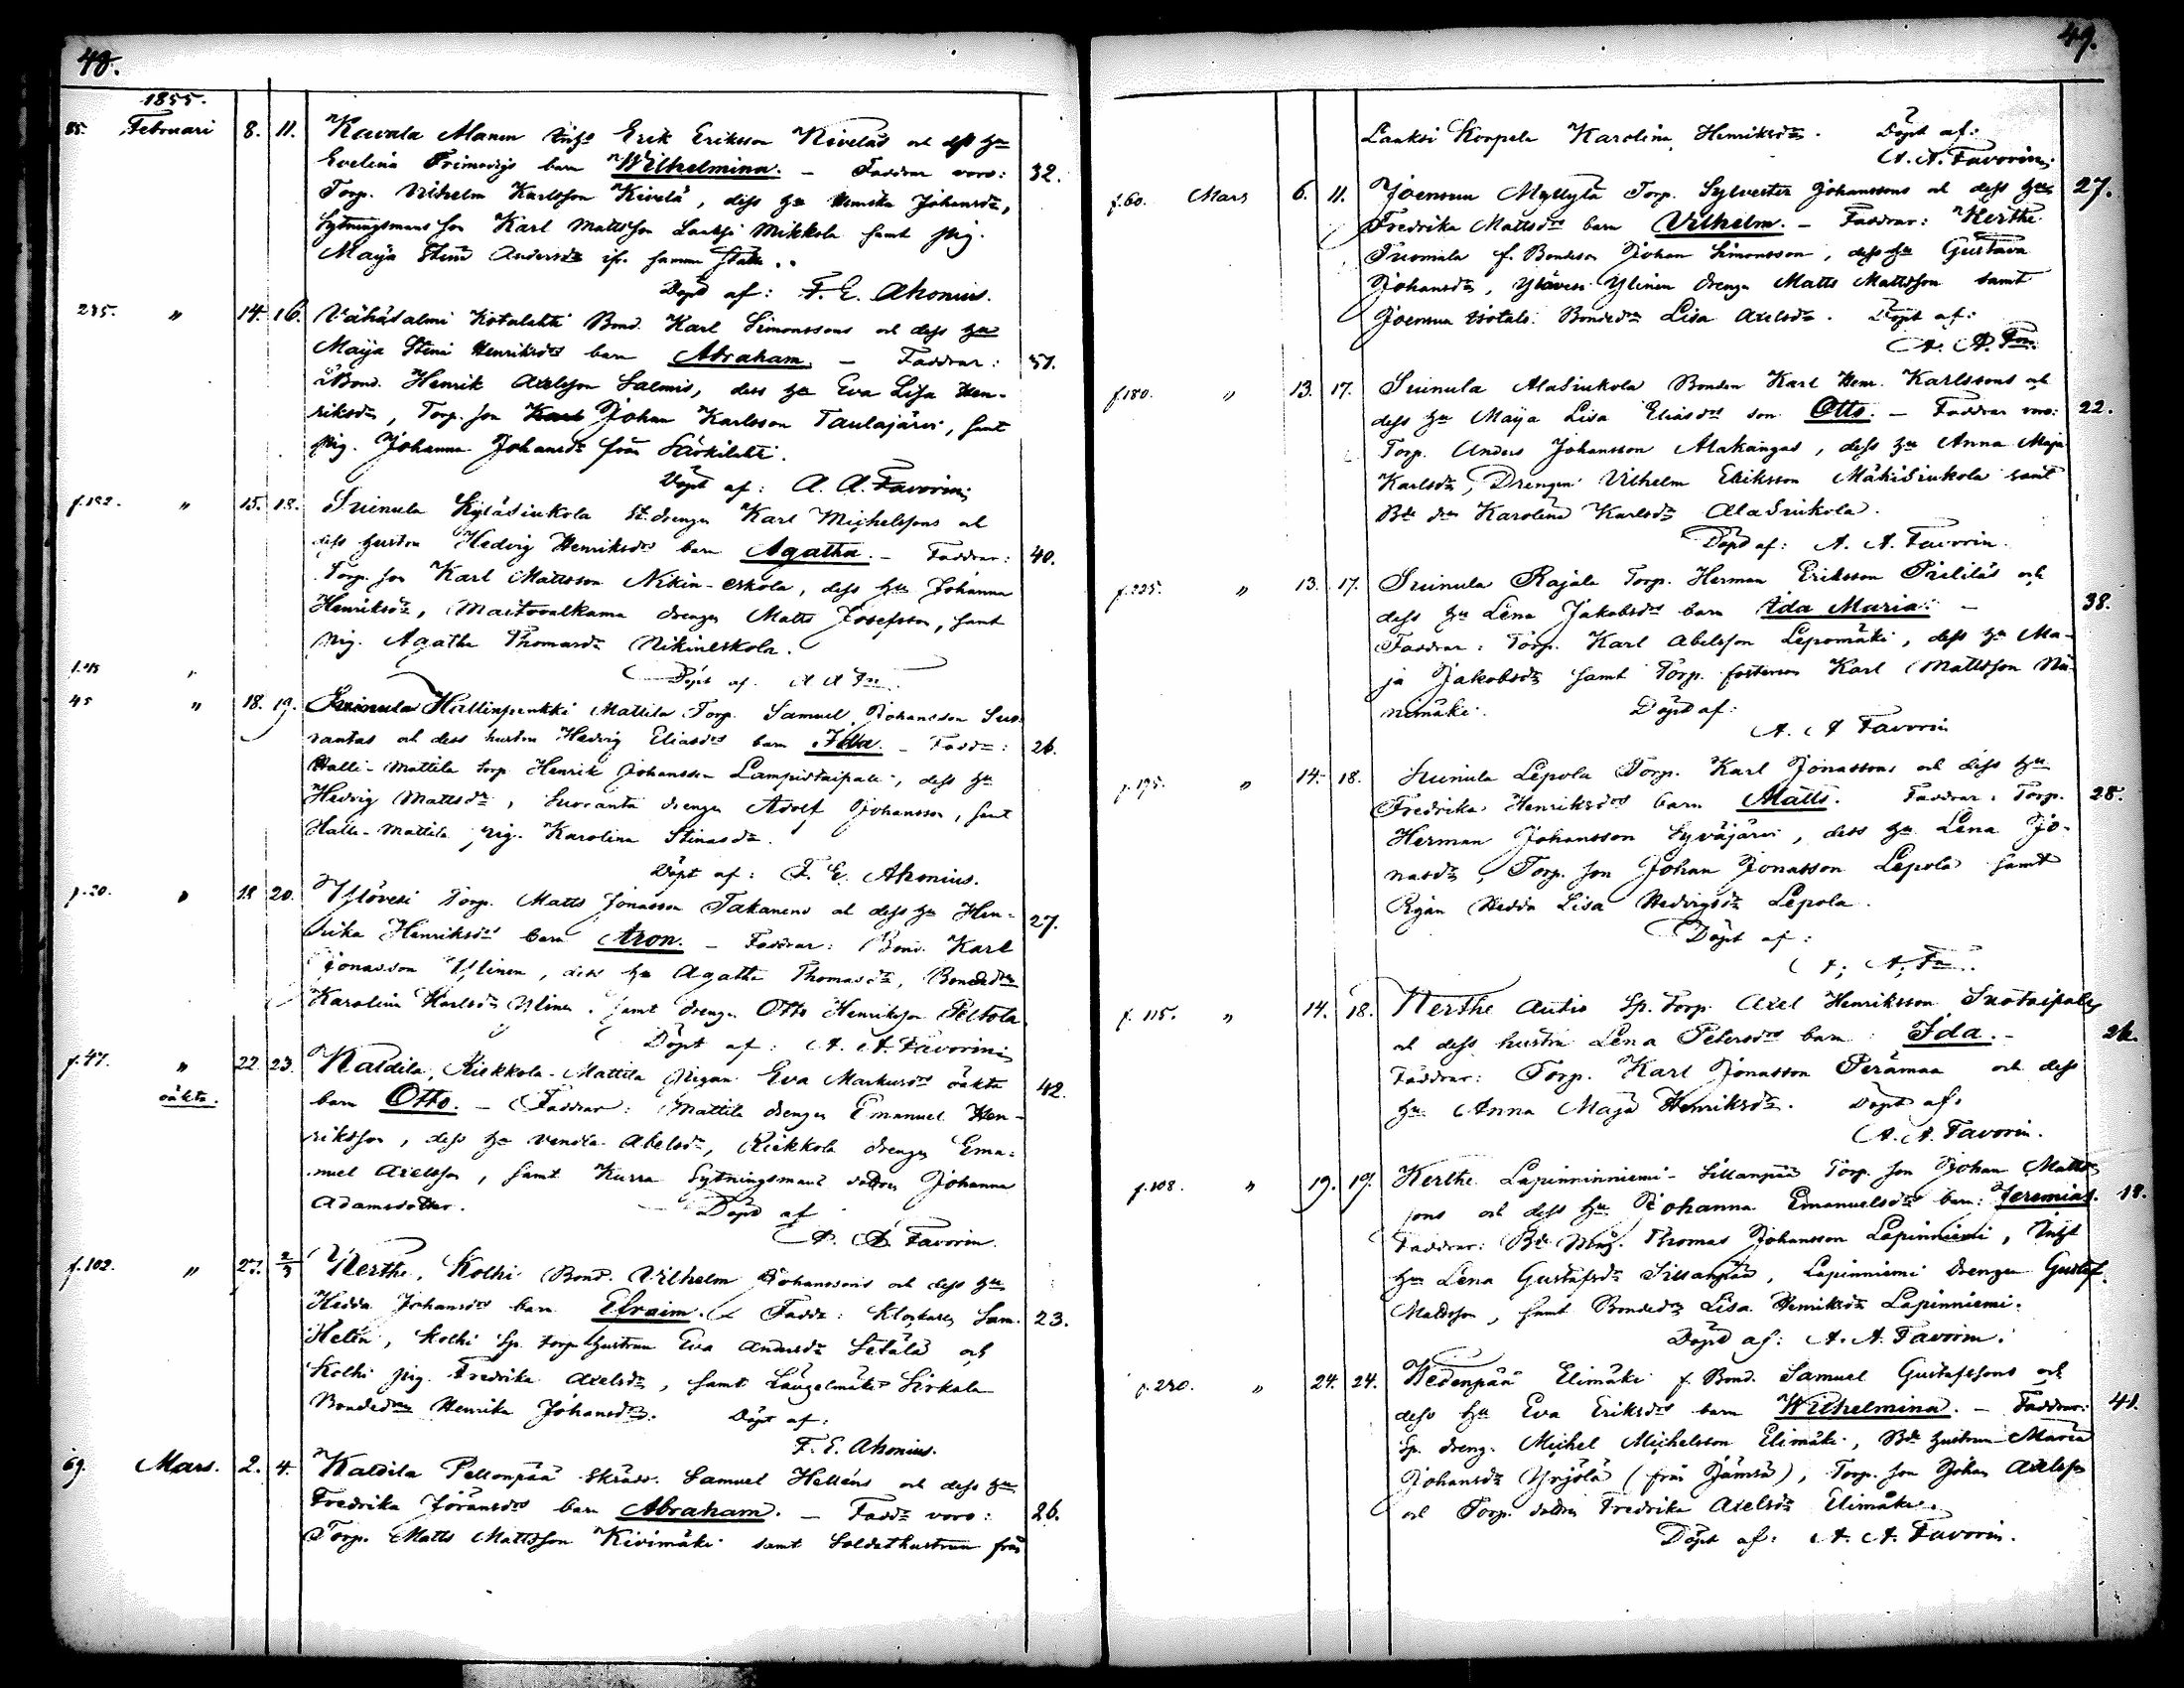 48.
1855.
85. Februari 8. 11. Kavala Manen Erik Eriksson Kiveläs och dess hu
Evelina barn Wilhelmina. – Faddrar voro: 32.
Torp. Vilhelm Karlsson Kivelä, dess hu Henrika Johansdr,
Sytningsmans son Karl Mattsson Laaksi Mikkola samt pig.
Maija Stina Andersdr samma
Döpt af: F. E. Ahonius.
" 14. 16. Vähäsalmi Kotalahti Bond. Karl Simonssons och dess hu
Maija Stina Henriksdrs barn Abraham. – Faddrar: 51.
Bond. Henrik Axelsson Salmis, dess hu Eva Lisa Hen-
riksdr, Torp. son Karl Johan Karlsson Taulajärvi, samt
pig. Johanna Johansdr från Särkilahti.
Döpt af: A. A. Favorin
f.182. " 15. 18. Suinula Kyläsiukola drengen Karl Michelssons och
dess hustru Hedvig Henriksdrs barn Agatha. – Faddrar: 40.
Torp. son Karl Mattsson Nikin-eskola, dess hu Johanna
Henriksdr, drengen Matts Josefsson, samt
pig. Agatha Thomasdr Nikineskola.
Döpt af. A A Fn
45 " 18. 19. Suinula Hallinpenkki Mattila Torp. Samuel Johansson Suo-
rantas och dess hustru Hedvig Eliasdrs barn Ida. – Faddr: 26.
Halli-Mattila torp Henrik Johansson Lampistaipale, dess hu
Hedvig Mattsdr, Suoranta drengen Adolf Johansson, samt
Halli-Mattila pig. Karolina Stinasdr.
Döpt af: F. E. Ahonius.
p.20. " 18 20. Ylövesi Torp. Matts Jonasson Takanens och dess hu Hen-
rika Henriksdrs barn Aron. – Faddrar: Bond. Karl 27.
Jonasson Ylinen, dess hu Agatha Thomasdr, Bondedr
Karolina Karlsdr Ylinen, samt drengen Otto Henriksson Peltola.
Döpt af: A. A. Favorin
f.47. " 22. 23. Kaldila, Riekkola-Mattila pigan Eva Markusdrs oäkta 42.
oäkta. barn Otto. – Faddrar: Mattila drengen Emanuel Hen-
riksson, dess hu Vendla Abelsdr, Riekkola drengen Ema-
nuel Axelsson, samt Kurra Sytningsmans dotter Johanna
Adamsdotter. Döpt af
A. A. Favorin.
f.102. " 27. 2/3 Kerthe, Kolhi Bond. Vilhelm Johanssons och dess hu
Hedda Johansdrs barn Efraim. Faddr: Klockaren Sam. 23.
Helén, Kolhi Sp. torp hustrun Eva Andersdr Setälä och
Kolhi pig. Fredrika Axelsdr, samt Längelmäki Sirkala
Bondedn Henrika Johansdr. Döpt af:
F. E. Ahonius.
69. Mars. 2. 4. Kaldila Peltonpää Skrädd. Samuel Helléns och dess hu
Fredrika Göransdrs barn Abraham. – Faddr voro: 26.
Torp. Matts Mattsson Kivimäki samt Soldathustrun från
49.
Laaksi Korpela Karolina Henriksdr. Döpt af:
A. A. Favorin
f.60. Mars 6. 11. Joensuu Myllylä Torp. Sylvester Johanssons och dess hu 27.
Fredrika Mattsdrs barn Vilhelm. – Faddrar: Kerthe
Tuomala f. Bondeson Johan Simonsson, dess hu Gustava
Johansdr, Ylävesi Ylinen drengen Matts Mattsson samt
Joensuu Bondedr Lisa Axelsdr. Döpt af:
A. A. Fn.
f.180. " 13. 17. Suinula Alasiukola Bonden Karl Henr. Karlssons och
dess hu Maija Lisa Eliasdrs son Otto. – Faddrar voro: 22.
Torp. Anders Johansson Alakangas, dess hu Anna Maja
Karlsdr, Drengen Vilhelm Eriksson Mäkisiukola samt
Bde dn Karolina Karlsdr Alasiukola.
Döpt af: A. A. Favorin.
f.225. " 13. 17. Suinula Rajala Torp. Herman Eriksson och
dess hu Lena Jakobsdrs barn Ida Maria. – 38.
Faddrar: Torp. Karl Abelsson Lepomäki, dess hu Ma-
ja Jakobsdr samt Torp. fosterson Karl Mattsson Nii-
nimäki. Döpt af:
A. A Favorin
f.175. " 14. 18. Suinula Lepola Torp. Karl Jonassons och dess hu
Fredrika Henriksdrs barn Matts. Faddrar: Torp. 28.
Herman Johansson Syväjärvi, dess hu Lena Jo-
nasdr, Torp. son Johan Jonasson Lepola samt
Pigan Hedda Lisa Hedvigsdr Lepola.
Döpt af:
A. A. Fn.
f. 115. " 14. 18. Kerthe Autio Sp. Torp. Axel Henriksson Suotaipale
och dess hustru Lena Petersdrs barn Ida. – 26.
Faddrar: Torp. Karl Jonasson Perämaa och dess
hu Anna Maja Henriksdr. Döpt af:
A. A. Favorin.
f.108. " 19. 19. Kerthe Lapinniemi-Sillanpää Torp. son Johan Matts-
sons och dess hu Johanna Emanuelsdrs barn: Jeremias. 18.
Faddrar: Bde Thomas Johansson Lapinniemi,
hu Lena Gustafsdr Sillanpää, Lapinniemi drengen Gustaf
Mattsson, samt Bondedr Lisa Henriksdr Lapinniemi.
Döpt af: A. A. Favorin.
" 24. 24. Wedenpää Elimäki f. Bond. Samuel Gustafssons och
dess hu Eva Eriksdrs barn Wilhelmina. – Faddrar: 41.
Sp. dreng. Michel Michelsson Elimäki, Bde hustrun Maria
Johansdr Yrjölä (från Jämsä), Torp. son Johan Axelsson
och Torp. dotter Fredrika Axelsdr Elimäki.
Döpt af: A. A. Favorin.